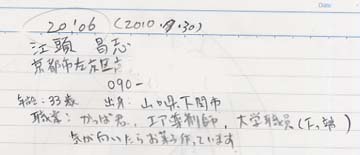 Date
20:06 (2010.9.30)
江頭 昌志
京都市左京区
090-
年齢:33歳 出身:山口県下関市
職業:かっぱ君, エア薬剤師, 大学職員(下っ端)
気が向いたらお菓子作っています